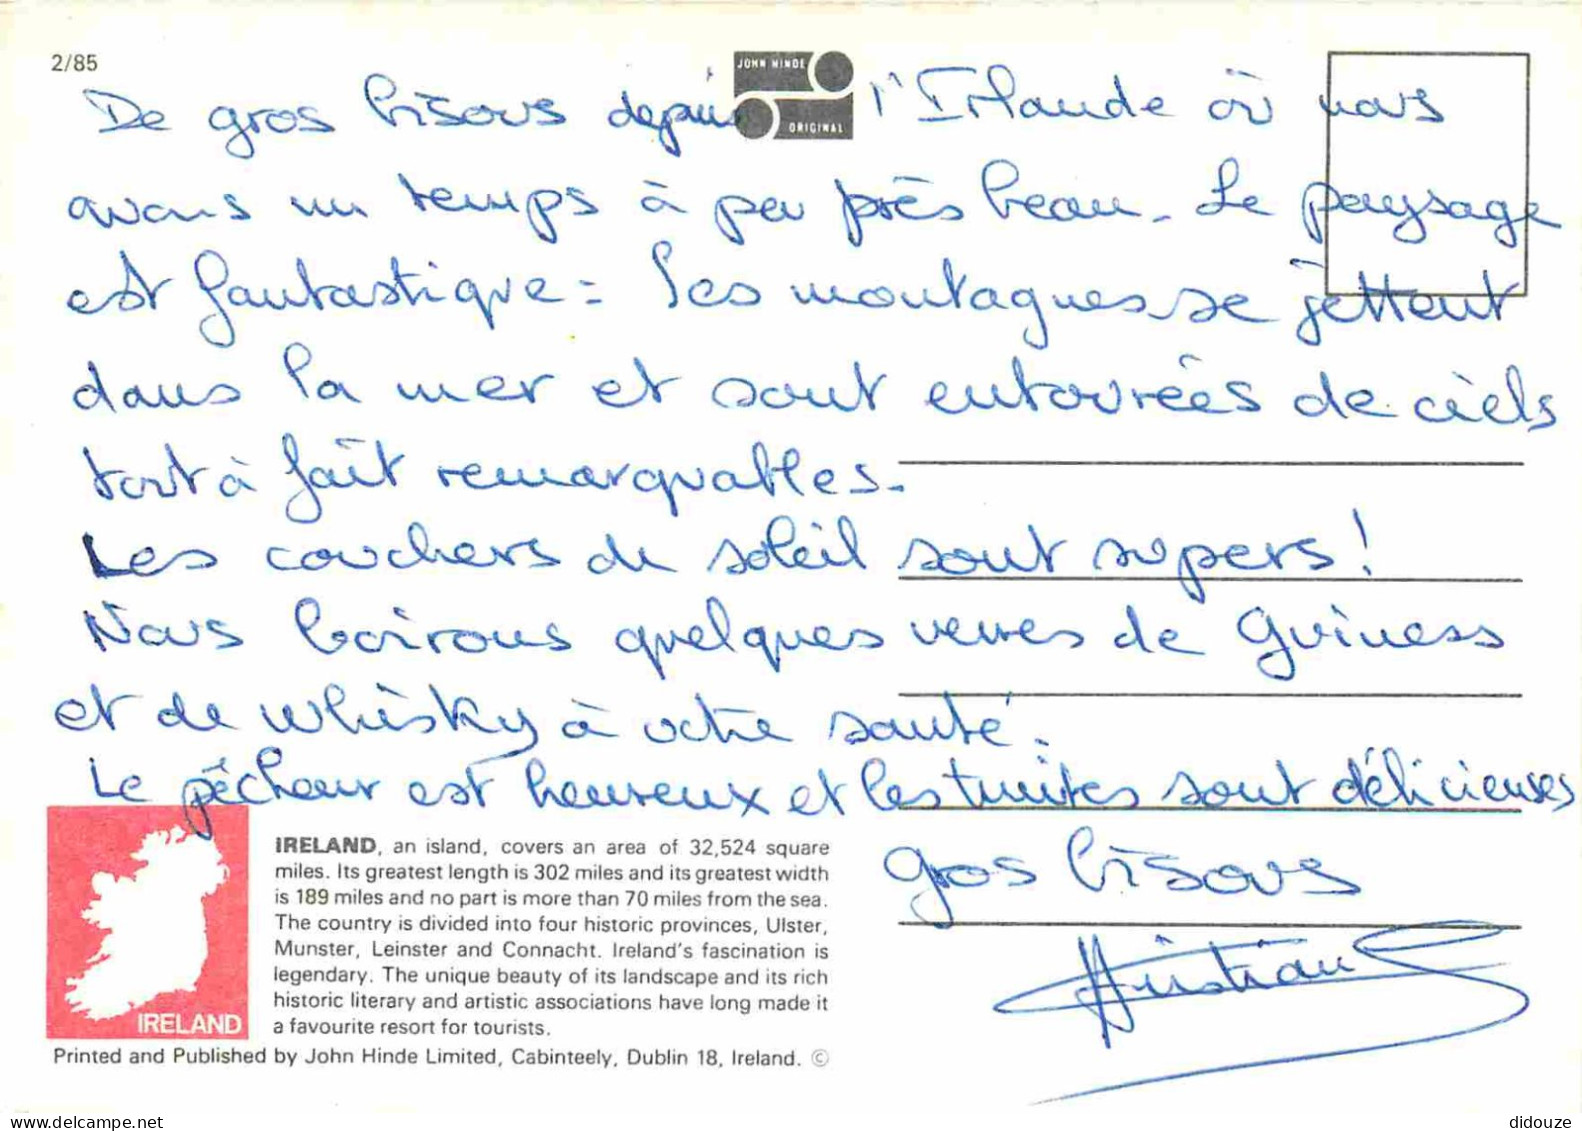 2/85
JOHN HINDE
ORIGINAL
De gros bisous depuis l'Irlande où nous
avons un temps à peu près beau. Le paysage
est fantastique : les montagnes se jettent
dans la mer et sont entourées de ciels
tout à fait remarquables.
Les couchers de soleil sont supers !
Nous boirons quelques verres de Guiness
et de whisky à votre santé.
Le pêcheur est heureux et les truites sont délicieuses
gros bisous
Christian
IRELAND, an island, covers an area of 32,524 square
miles. Its greatest length is 302 miles and its greatest width
is 189 miles and no part is more than 70 miles from the sea.
The country is divided into four historic provinces, Ulster,
Munster, Leinster and Connacht. Ireland's fascination is
legendary. The unique beauty of its landscape and its rich
historic literary and artistic associations have long made it
a favourite resort for tourists.
IRELAND
Printed and Published by John Hinde Limited, Cabinteely, Dublin 18, Ireland. ©
didouze